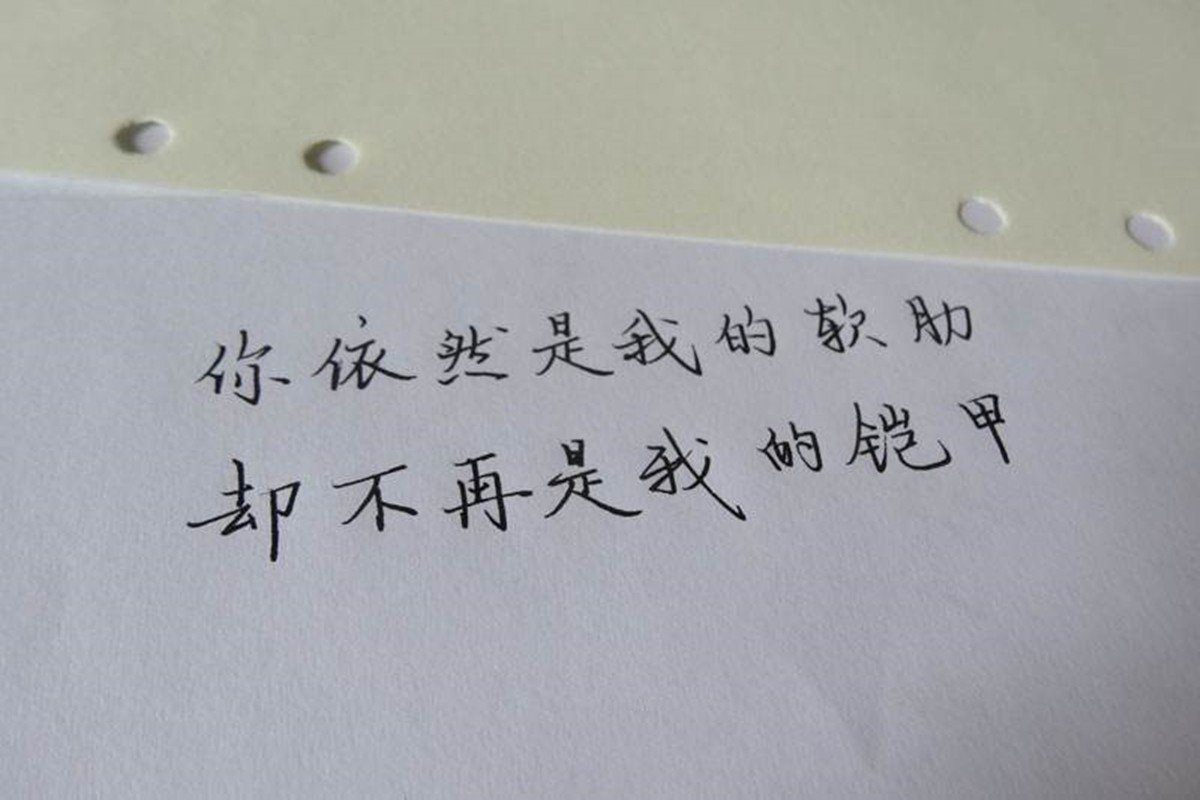 你依然是我的软肋
却不再是我的铠甲